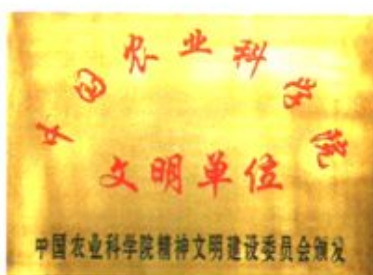 中国农业科学院
文明单位
中国农业科学院精神文明建设委员会颁发